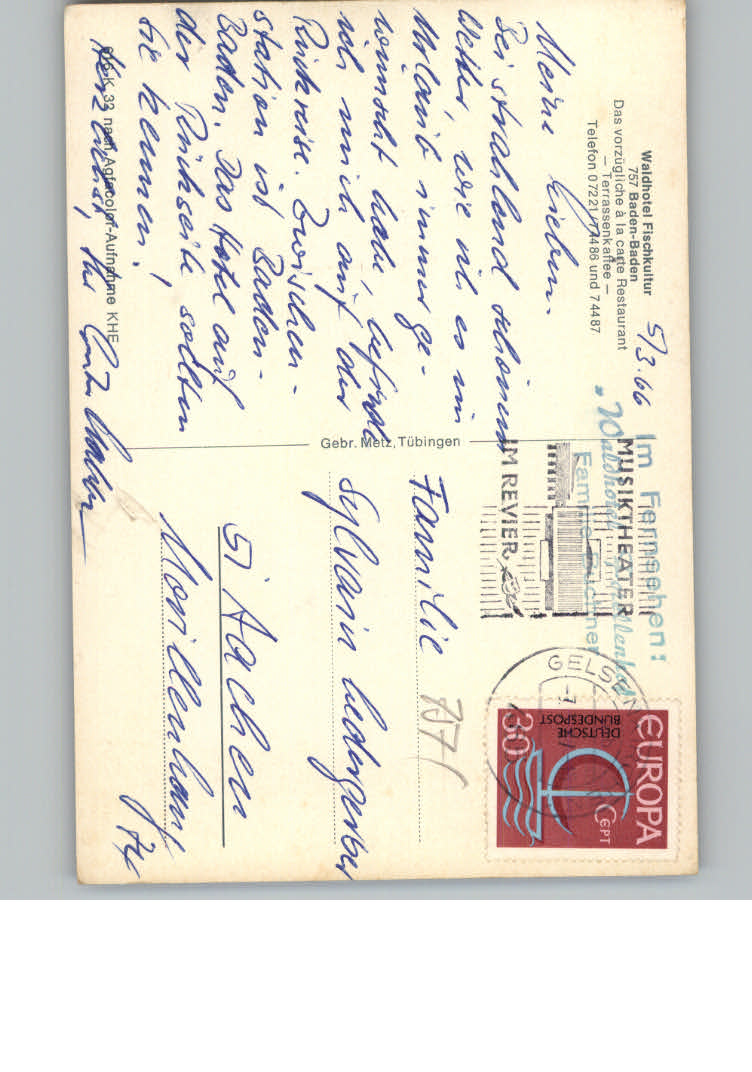 Waldhotel Fischkultur
757 Baden-Baden
Das vorzügliche à la carte Restaurant
— Terrassenkaffee —
Telefon 07221/74486 und 74487
5/3.66
Meine Lieben.
Bei strahlend schönem
Wetter, wie ich es im
Urlaub immer ge-
wünscht habe, befinde
ich mich auf der
Rückreise. Zwischen-
station ist Baden-
Baden. Das Hotel auf
der Rückseite sollten
Sie kennen!
Herzlichst, Ihr
K 33 nach Agfacolor-Aufnahme KHE
Gebr. Metz, Tübingen
Im Fernsehen:
"Waldhotel
Familie
MUSIKTHEATER
IM REVIER
GELSEN
EUROPA
CEPT
DEUTSCHE
BUNDESPOST
30
Familie
Sylvain
51 Aachen